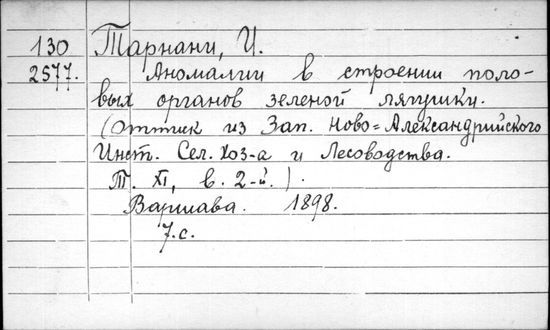 130 Тарнани, И.
2577. Аномалии в строении поло-
вых органов зеленой лягушки.
(Оттиск из Зап. Ново=Александрийского
Инст. Сел. Хоз-а и Лесоводства.
Т. XI, в. 2-й.).
Варшава. 1898.
7.с.